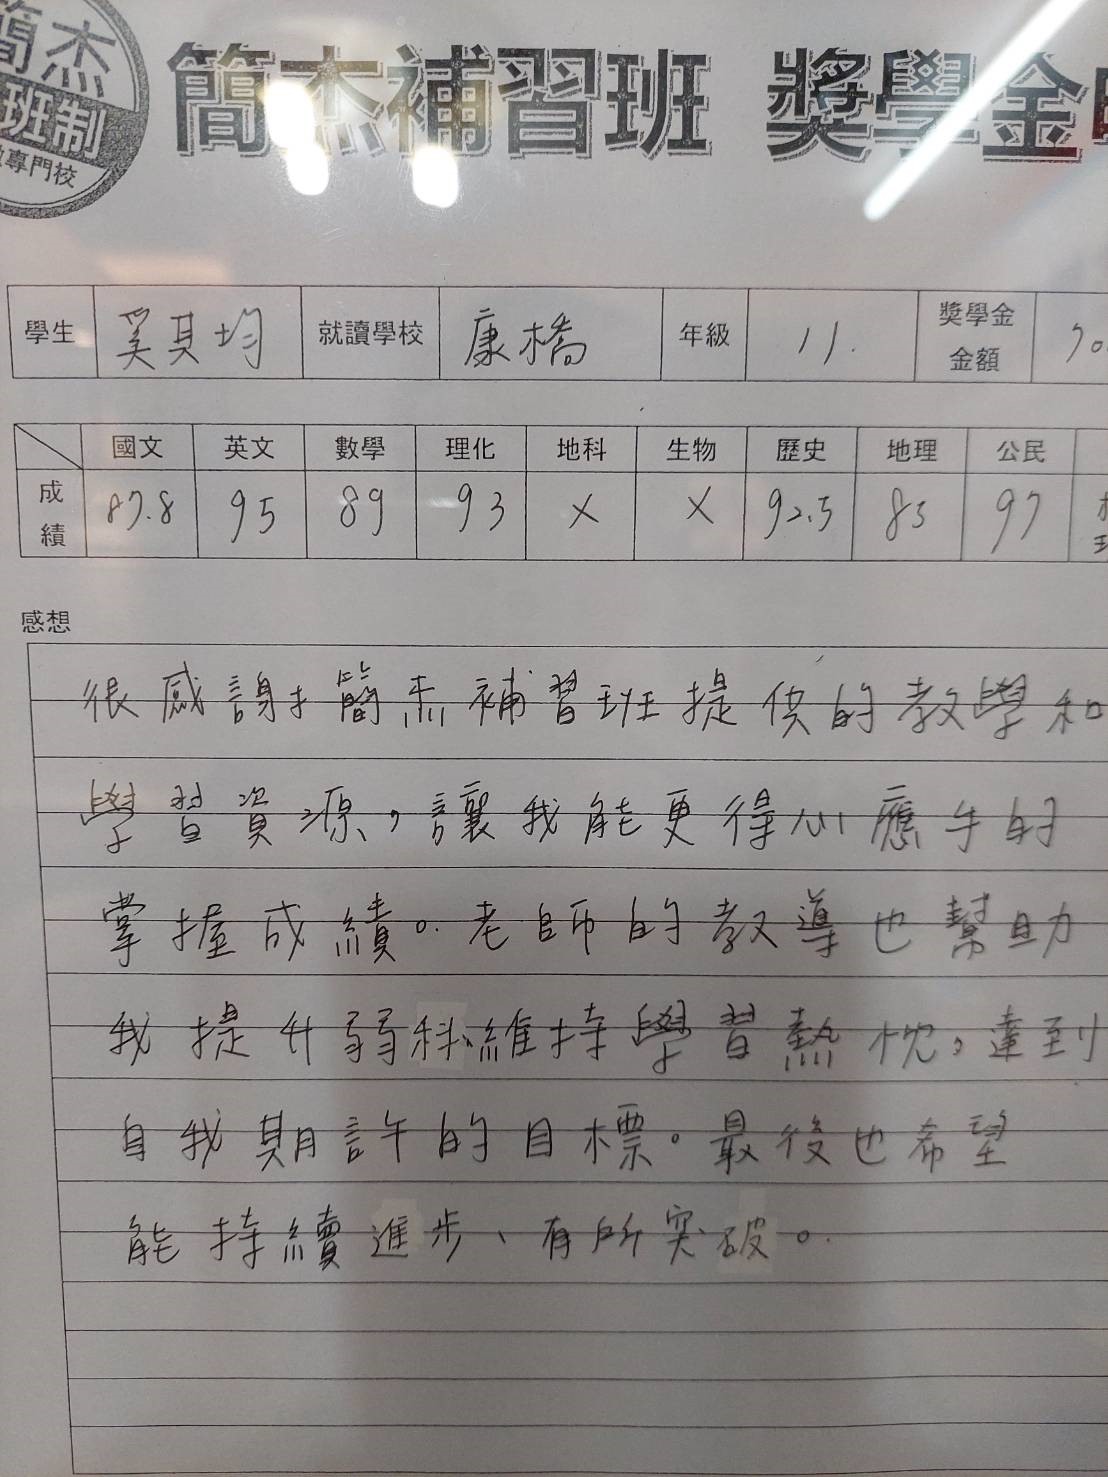 簡杰
班制
專門校
簡杰補習班 獎學金
學生 奚其均 就讀學校 康橋 年級 11. 獎學金金額 70
國文 英文 數學 理化 地科 生物 歷史 地理 公民
成績 87.8 95 89 93 X X 92.5 85 97
感想
很感謝簡杰補習班提供的教學和
學習資源，讓我能更得心應手的
掌握成績。老師的教導也幫助
我提升弱科、維持學習熱忱，達到
自我期許的目標。最後也希望
能持續進步、有所突破。